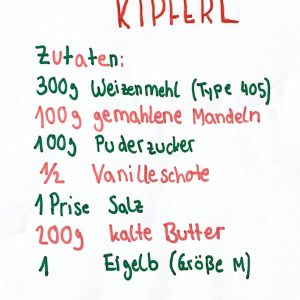 KIPFERL
Zutaten:
300g Weizenmehl (Type 405)
100g gemahlene Mandeln
100g Puderzucker
1/2 Vanilleschote
1 Prise Salz
200g kalte Butter
1 Eigelb (Größe M)